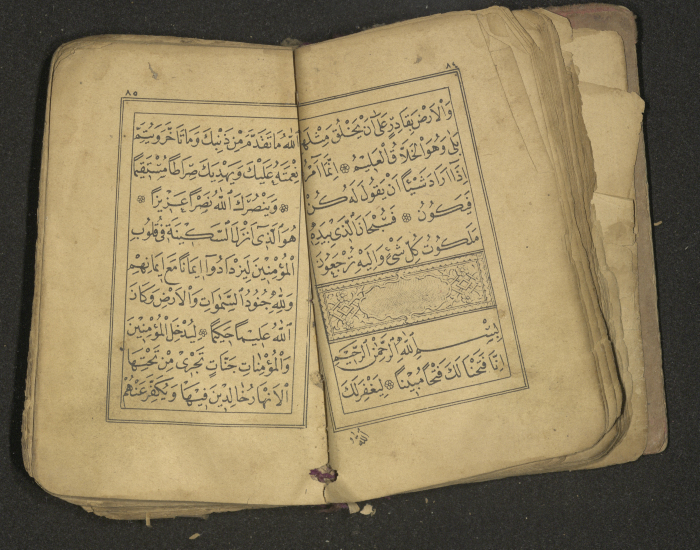 وَالْاَرْضَ بِقَادِرٍ عَلٰى اَنْ يَخْلُقَ مِثْلَهُمْ
بَلٰى وَهُوَ الْخَلَّاقُ الْعَلِيمُ ۞ اِنَّمَا اَمْرُهُ
اِذَا اَرَادَ شَيْئًا اَنْ يَقُولَ لَهُ كُنْ
فَيَكُونُ ۞ فَسُبْحَانَ الَّذِي بِيَدِهِ
مَلَكُوتُ كُلِّ شَيْءٍ وَاِلَيْهِ تُرْجَعُونَ
بِسْمِ اللّٰهِ الرَّحْمٰنِ الرَّحِيمِ
اِنَّا فَتَحْنَا لَكَ فَتْحًا مُبِينًا ۞ لِيَغْفِرَ لَكَ
اللّٰهُ
٨٥
اللّٰهُ مَا تَقَدَّمَ مِنْ ذَنْبِكَ وَمَا تَاَخَّرَ وَيُتِمَّ
نِعْمَتَهُ عَلَيْكَ وَيَهْدِيَكَ صِرَاطًا مُسْتَقِيمًا
۞ وَيَنْصُرَكَ اللّٰهُ نَصْرًا عَزِيزًا ۞
هُوَ الَّذِي اَنْزَلَ السَّكِينَةَ فِي قُلُوبِ
الْمُؤْمِنِينَ لِيَزْدَادُوا اِيمَانًا مَعَ اِيمَانِهِمْ
وَلِلّٰهِ جُنُودُ السَّمٰوَاتِ وَالْاَرْضِ وَكَانَ
اللّٰهُ عَلِيمًا حَكِيمًا ۞ لِيُدْخِلَ الْمُؤْمِنِينَ
وَالْمُؤْمِنَاتِ جَنَّاتٍ تَجْرِي مِنْ تَحْتِهَا
الْاَنْهَارُ خَالِدِينَ فِيهَا وَيُكَفِّرَ عَنْهُمْ